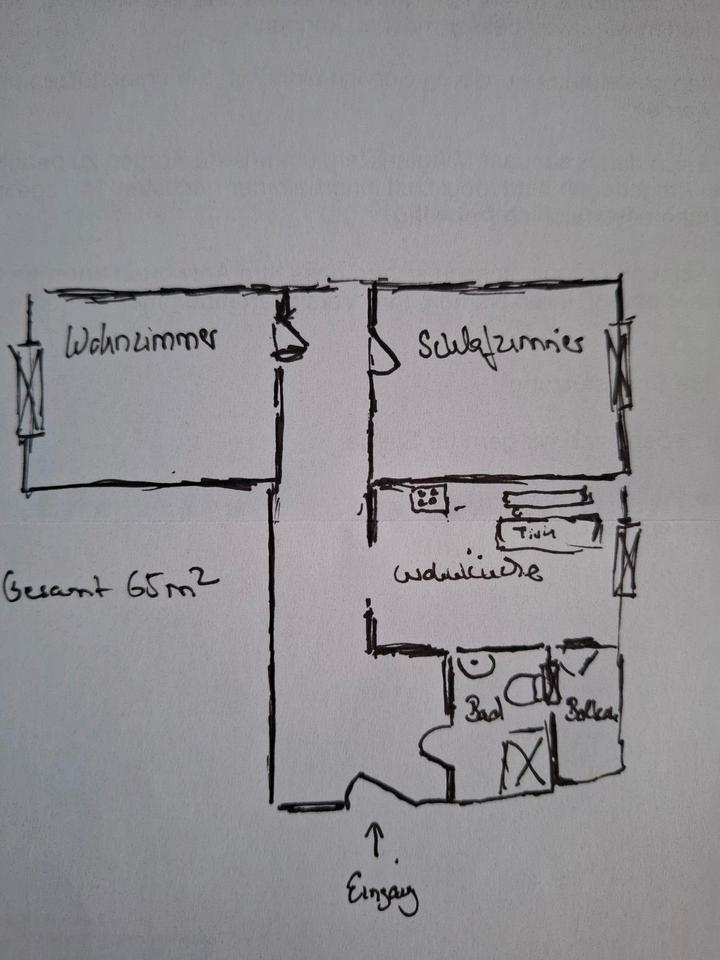 Wohnzimmer
Schlafzimmer
Tisch
Wohnküche
Gesamt 65m²
Bad
Balkon
Eingang